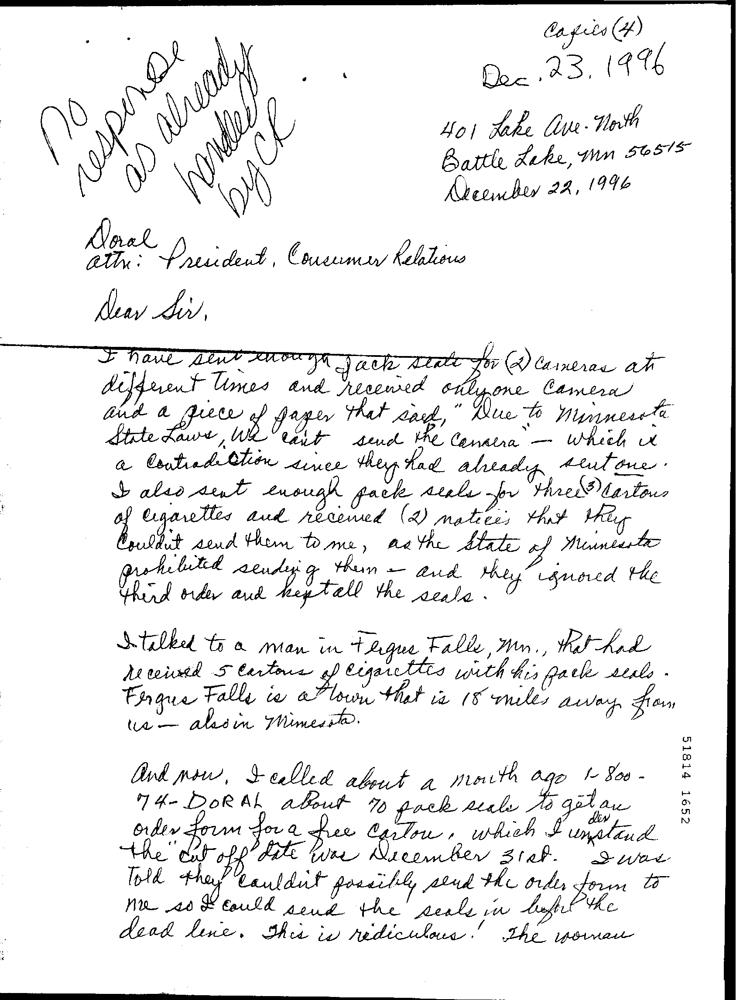 Copies (4)
Dec. 23, 1996
No
response
as already
handled
by CR
401 Lake Ave. North
Battle Lake, Mn 56515
December 22, 1996
Doral
attn: President, Consumer Relations
Dear Sir,
I have sent enough pack seals for (2) cameras at
different times and received only one camera
and a piece of paper that said, "Due to Minnesota
State Laws, we can't send the camera" — which is
a contradiction since they had already sent one.
I also sent enough pack seals for three (3) cartons
of cigarettes and received (2) notices that they
couldn't send them to me, as the State of Minnesota
prohibited sending them — and they ignored the
third order and kept all the seals.
I talked to a man in Fergus Falls, Mn., that had
received 5 cartons of cigarettes with his pack seals.
Fergus Falls is a town that is 18 miles away from
us — also in Minnesota.
And now, I called about a month ago 1-800-
74-DORAL about 70 pack seals to get an
order form for a free carton, which I understand
the "cut off" date was December 31st. I was
told they couldn't possibly send the order form to
me so I could send the seals in before the
dead line. This is ridiculous! The woman
51814 1652